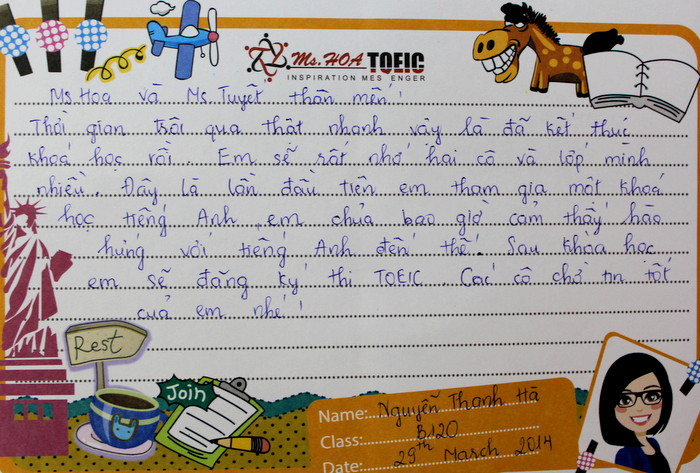 Ms. HOA TOEIC
INSPIRATION MESSENGER
Ms Hoa và Ms Tuyết thân mến!
Thời gian trôi qua thật nhanh vậy là đã kết thúc
khoá học rồi. Em sẽ rất nhớ hai cô và lớp mình
nhiều. Đây là lần đầu tiên em tham gia một khoá
học tiếng Anh, em chưa bao giờ cảm thấy hào
hứng với tiếng Anh đến thế. Sau khóa học
em sẽ đăng ký thi TOEIC. Các cô chờ tin tốt
của em nhé!
Rest
Join
Name: Nguyễn Thanh Hà
Class: B120
Date: 29th March 2014